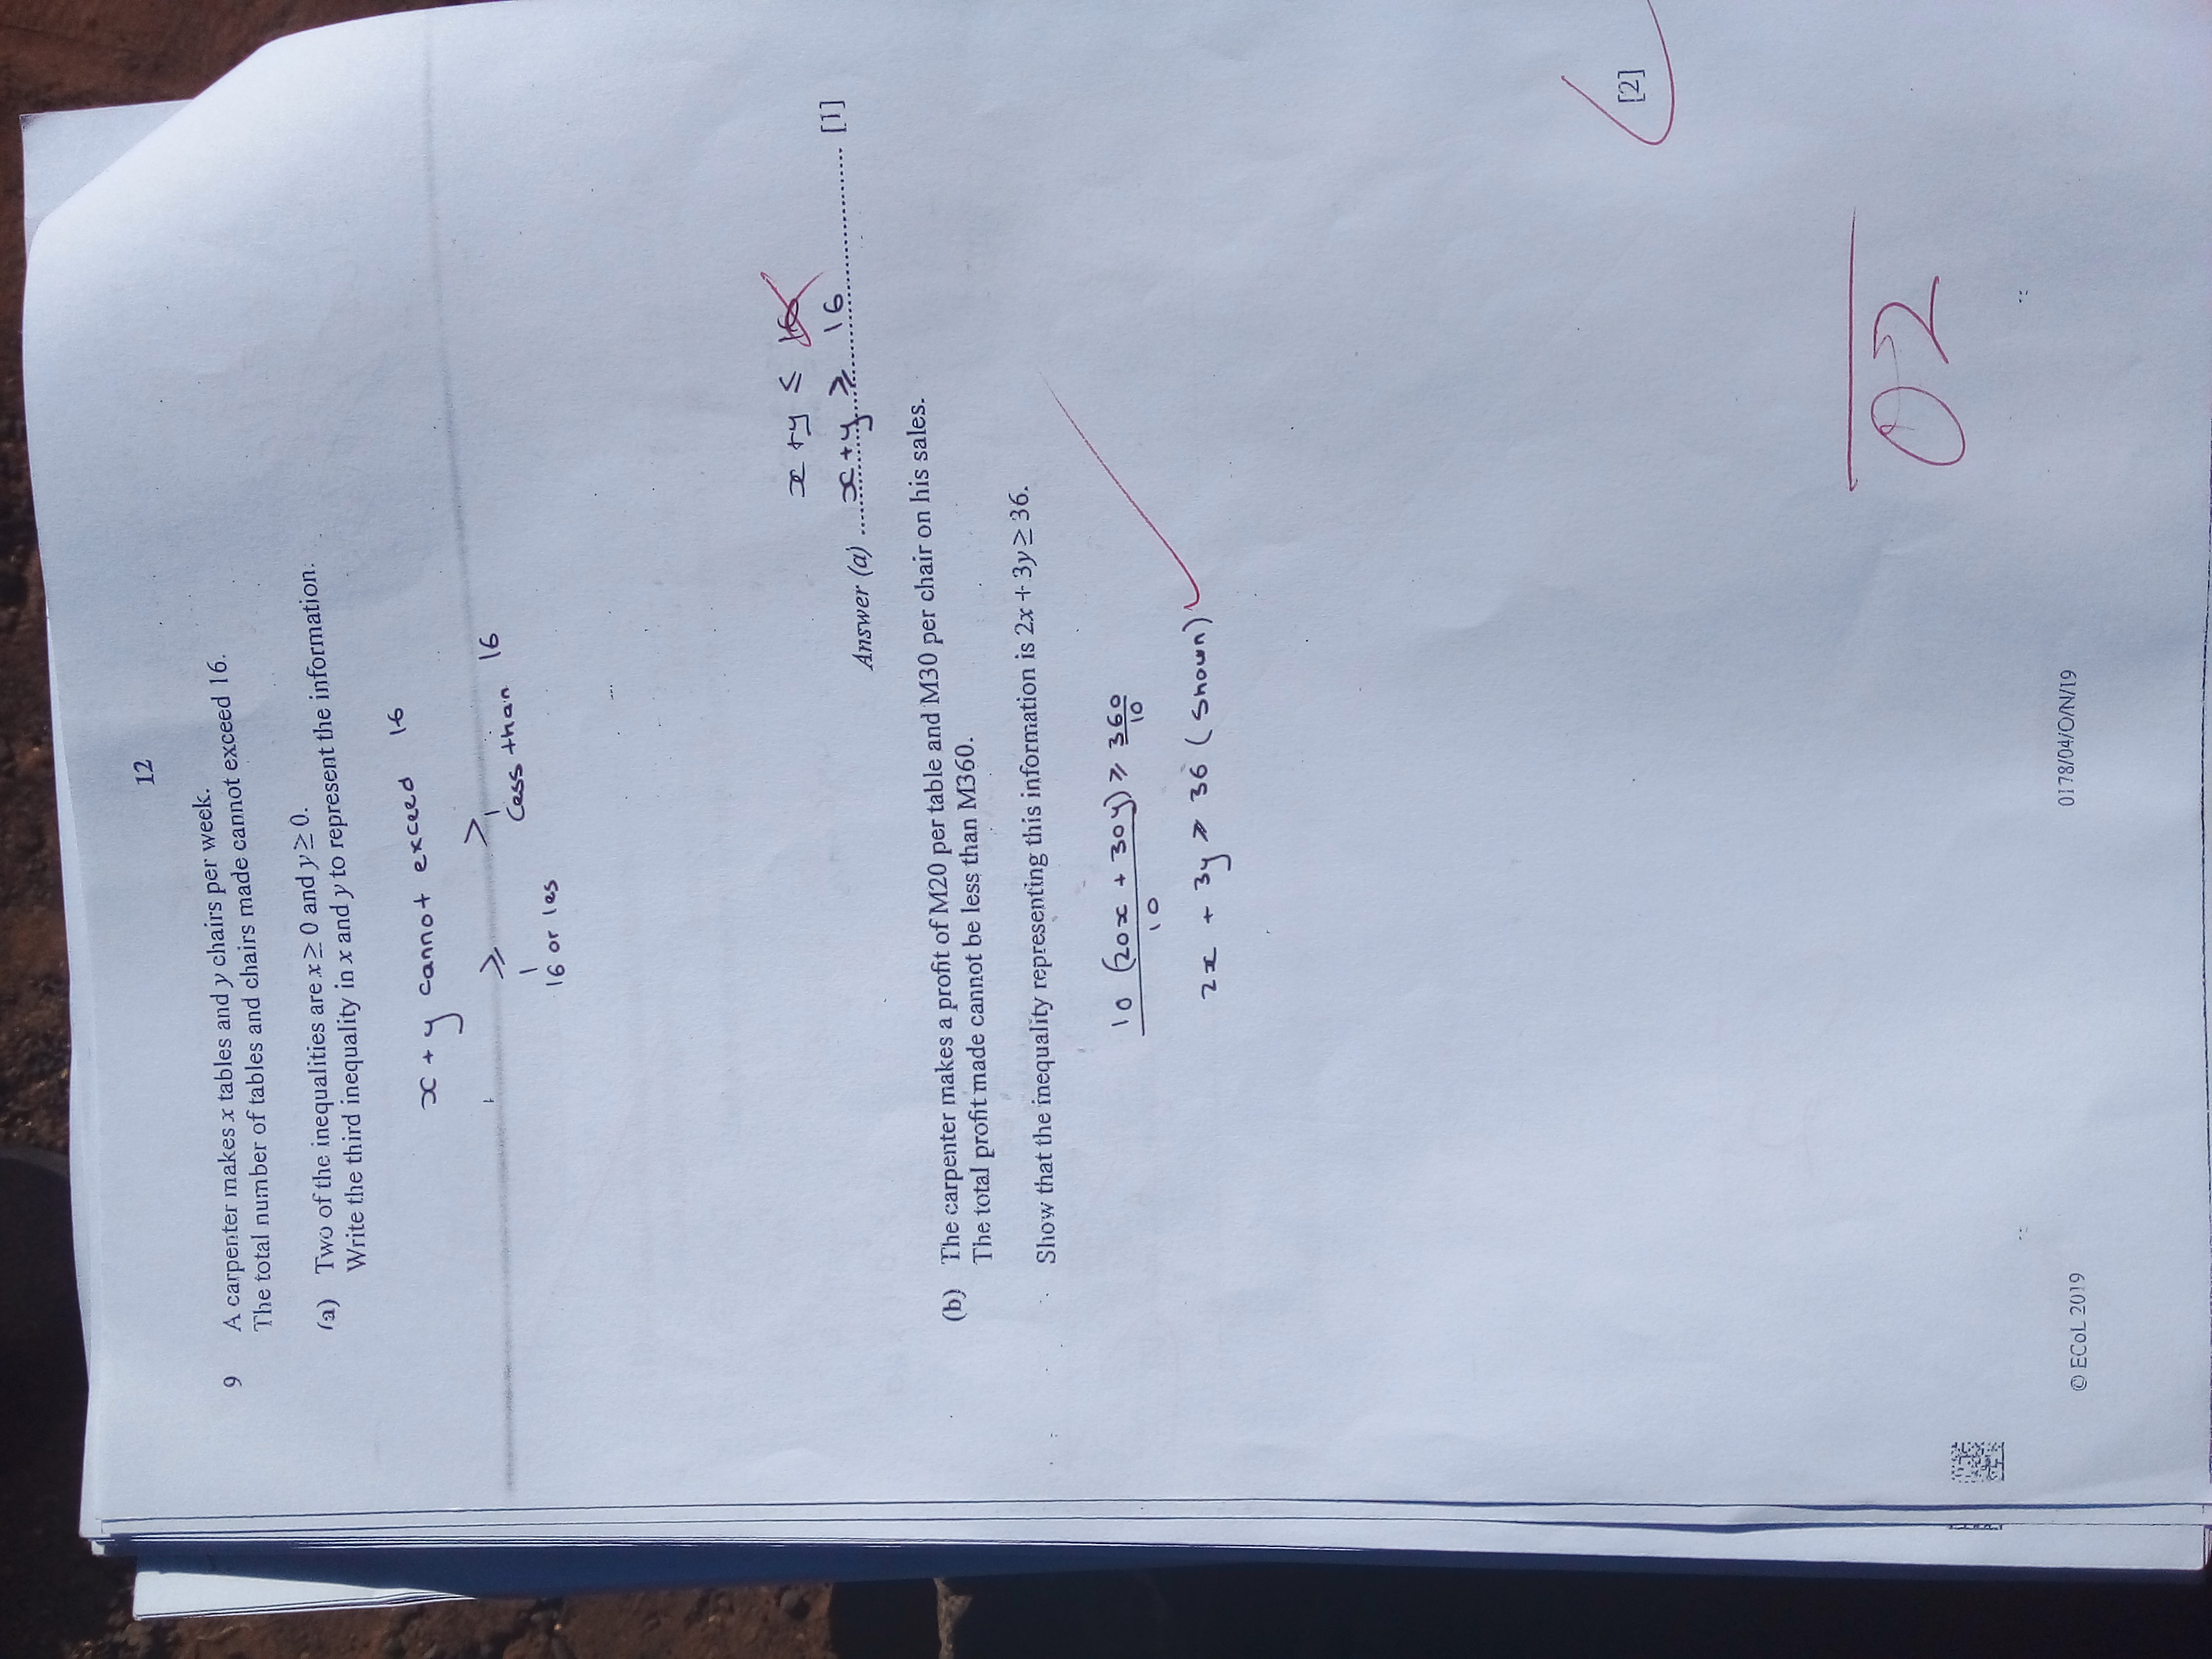 12
9 A carpenter makes x tables and y chairs per week.
The total number of tables and chairs made cannot exceed 16.
(a) Two of the inequalities are x ≥ 0 and y ≥ 0.
Write the third inequality in x and y to represent the information.
x + y cannot exceed 16
⩾ >
Less than 16
16 or les
x + y ≤ 16
Answer (a) ..... x + y ⩾ 16 ..... [1]
(b) The carpenter makes a profit of M20 per table and M30 per chair on his sales.
The total profit made cannot be less than M360.
Show that the inequality representing this information is 2x + 3y ≥ 36.
10 (20x + 30y) ⩾ 360
10 10
2x + 3y ⩾ 36 (Shown)
[2]
02
© ECoL 2019 0178/04/O/N/19